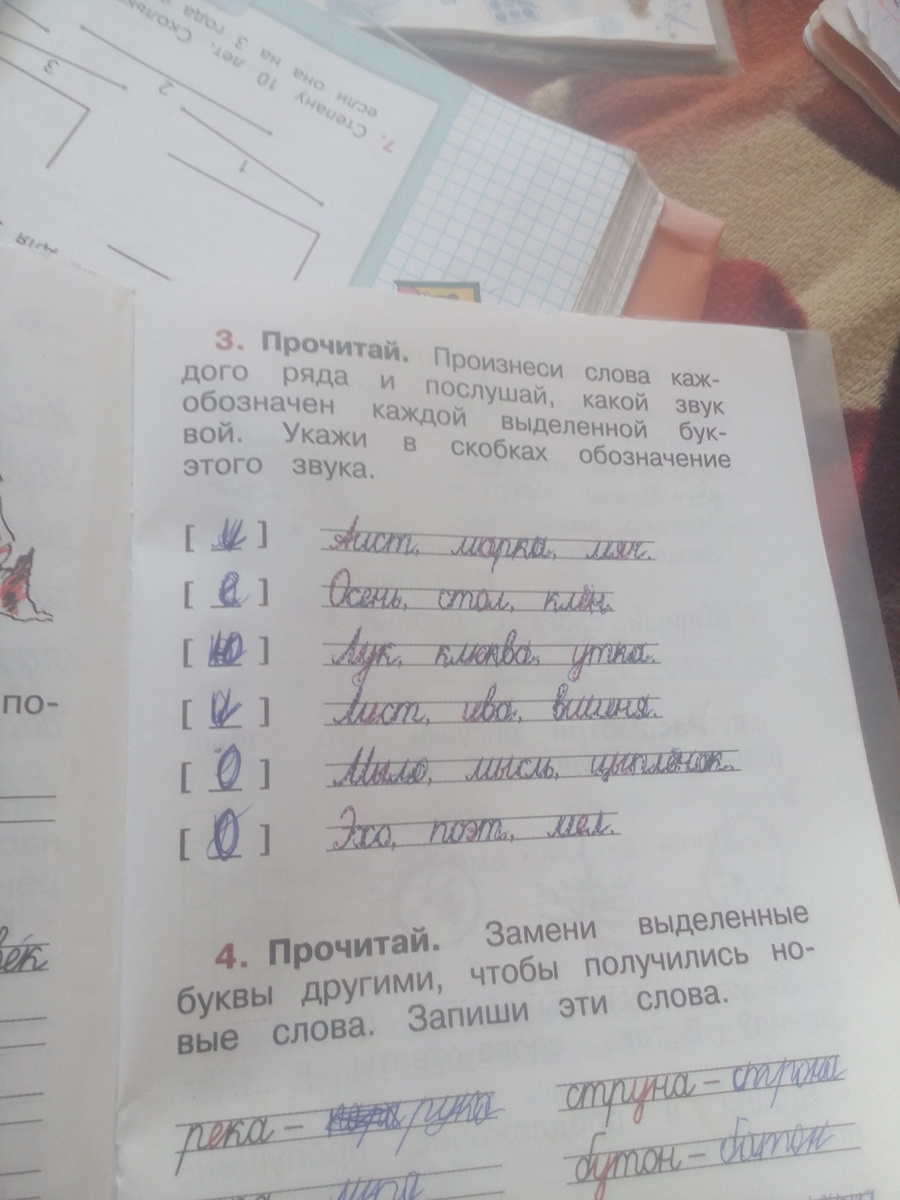 7. Степану 10 лет. Скольк
если она на 3 года
1
2
3
для
3. Прочитай. Произнеси слова каж-
дого ряда и послушай, какой звук
обозначен каждой выделенной бук-
вой. Укажи в скобках обозначение
этого звука.
[ ] Аист, марка, мяч.
[ е ] Осень, стол, клён.
[ ю ] Лук, клюква, утка.
[ и ] Лист, ива, вишня.
[ О ] Мыло, мысль, цыплёнок.
[ О ] Эхо, поэт, мел.
по-
век
4. Прочитай. Замени выделенные
буквы другими, чтобы получились но-
вые слова. Запиши эти слова.
река – рука
струна – строна
бутон – батон